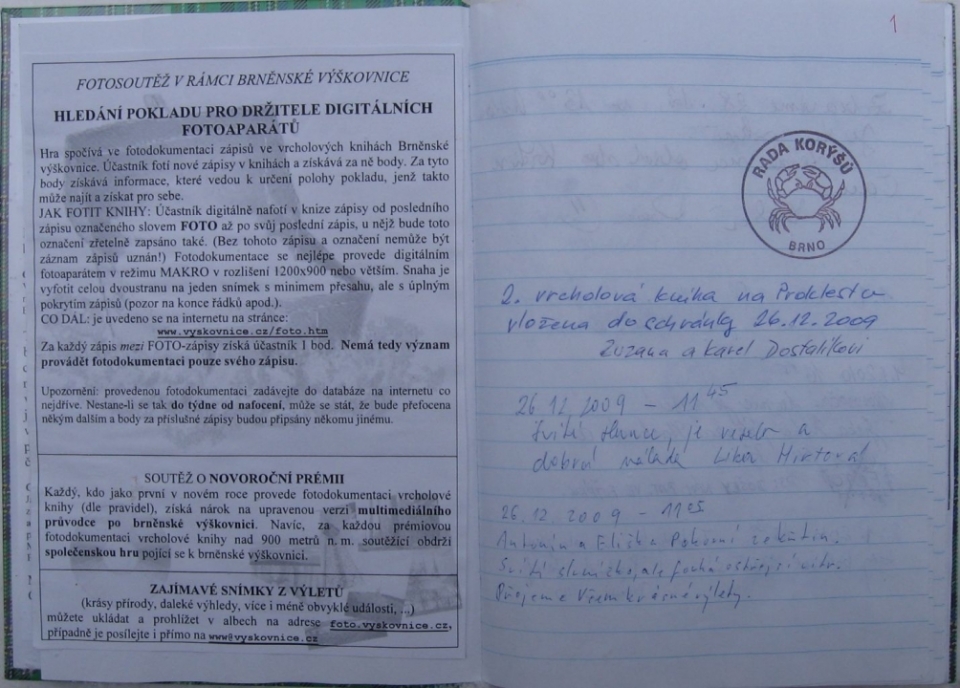 FOTOSOUTĚŽ V RÁMCI BRNĚNSKÉ VÝŠKOVNICE
HLEDÁNÍ POKLADU PRO DRŽITELE DIGITÁLNÍCH
FOTOAPARÁTŮ
Hra spočívá ve fotodokumentaci zápisů ve vrcholových knihách Brněnské
výškovnice. Účastník fotí nové zápisy v knihách a získává za ně body. Za tyto
body získává informace, které vedou k určení polohy pokladu, jenž takto
může najít a získat pro sebe.
JAK FOTIT KNIHY: Účastník digitálně nafotí v knize zápisy od posledního
zápisu označeného slovem FOTO až po svůj poslední zápis, u nějž bude toto
označení zřetelně zapsáno také. (Bez tohoto zápisu a označení nemůže být
záznam zápisů uznán!) Fotodokumentace se nejlépe provede digitálním
fotoaparátem v režimu MAKRO v rozlišení 1200x900 nebo větším. Snaha je
vyfotit celou dvoustranu na jeden snímek s minimem přesahu, ale s úplným
pokrytím zápisů (pozor na konce řádků apod.).
CO DÁL: je uvedeno se na internetu na stránce:
www.vyskovnice.cz/foto.htm
Za každý zápis mezi FOTO-zápisy získá účastník 1 bod. Nemá tedy význam
provádět fotodokumentaci pouze svého zápisu.
Upozornění: provedenou fotodokumentaci zadávejte do databáze na internetu co
nejdříve. Nestane-li se tak do týdne od nafocení, může se stát, že bude přefocena
někým dalším a body za příslušné zápisy budou připsány někomu jinému.
SOUTĚŽ O NOVOROČNÍ PRÉMII
Každý, kdo jako první v novém roce provede fotodokumentaci vrcholové
knihy (dle pravidel), získá nárok na upravenou verzi multimediálního
průvodce po brněnské výškovnici. Navíc, za každou prémiovou
fotodokumentaci vrcholové knihy nad 900 metrů n. m. soutěžící obdrží
společenskou hru pojící se k brněnské výškovnici.
ZAJÍMAVÉ SNÍMKY Z VÝLETŮ
(krásy přírody, daleké výhledy, více i méně obvyklé události, ...)
můžete ukládat a prohlížet v albech na adrese foto.vyskovnice.cz,
případně je posílejte i přímo na www@vyskovnice.cz
1
RADA KORÝŠŮ
BRNO
2. vrcholová kniha na Proklestu
vložena do schránky 26.12.2009
Zuzana a Karel Dostalíkovi
26.12.2009 – 11 45
Svítí slunce, je veselo a
dobrá nálada
26.12.2009 – 11
Antonín a Eliška
Svítí sluníčko, ale fouká ostřejší vítr.
Přejeme Všem krásné výlety.